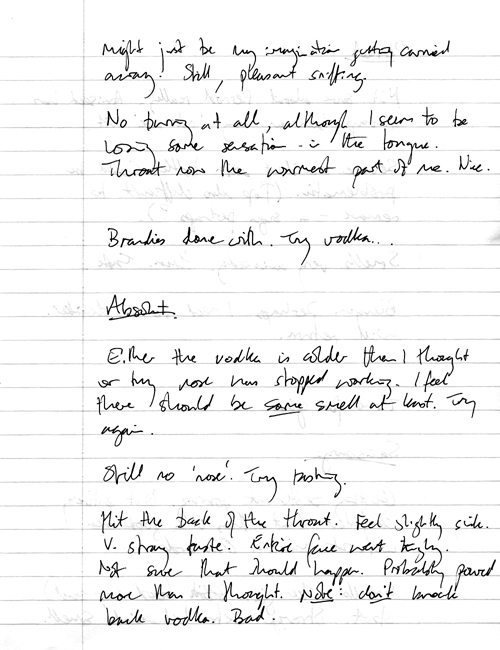 might just be my imagination getting carried
away! Still, pleasant sniffing.
No burning at all, although I seem to be
losing some sensation in the tongue.
Throat now the warmest part of me. Nice.
Brandies done with. Try vodka...
Absolut.
Either the vodka is colder than I thought
or my nose has stopped working. I feel
there should be some smell at least. Try
again.
Still no 'nose'. Try tasting.
Hit the back of the throat. Feel slightly sick.
V. strong taste. Entire face went tingly.
Not sure that should happen. Probably poured
more than I thought. Note: don't knock
back vodka. Bad.